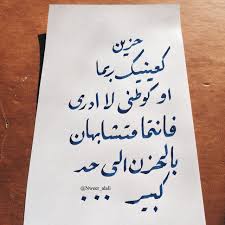 حزين
كعينيك ربما
او كوطني لا ادري
فانتما متشابهان
بالحزن الى حد
كبير ...
@Nweer_alali